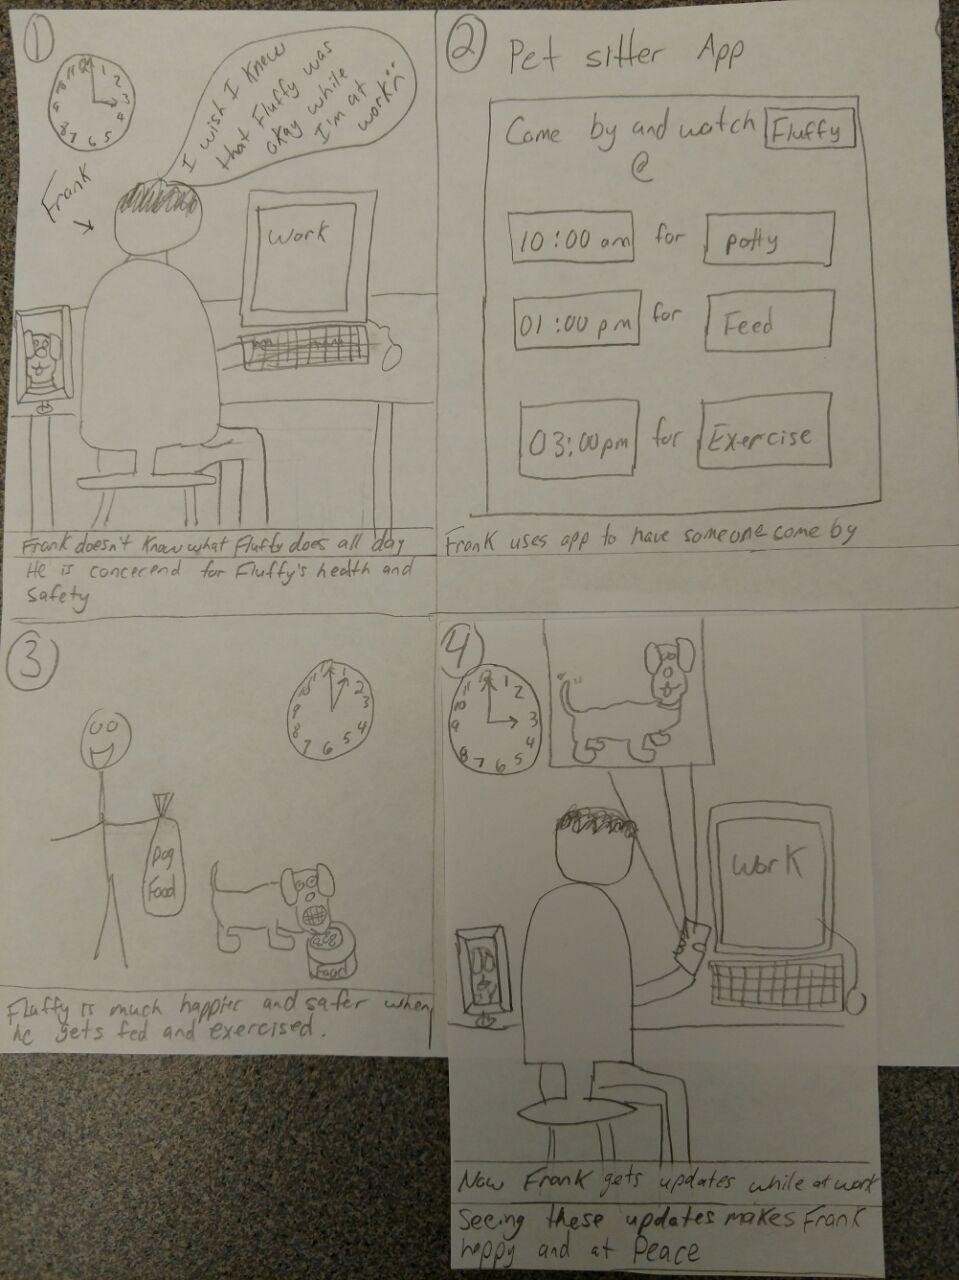 1
12 1 2 3 4 5 6 7 8 9 10 11
I wish I knew
that Fluffy was
okay while
I'm at
work
Frank
Work
Frank doesn't know what Fluffy does all day
He is concerend for Fluffy's health and
safety
2 Pet sitter App
Come by and watch Fluffy
@
10:00 am for potty
01:00 pm for Feed
03:00pm for Exercise
Frank uses app to have someone come by
3
12 1 2 3 4 5 6 7 8 9 10 11
Dog
Food
Food
Fluffy is much happier and safer when
he gets fed and exercised.
4
12 1 2 3 4 5 6 7 8 9 10 11
Work
Now Frank gets updates while at work
Seeing these updates makes Frank
happy and at Peace